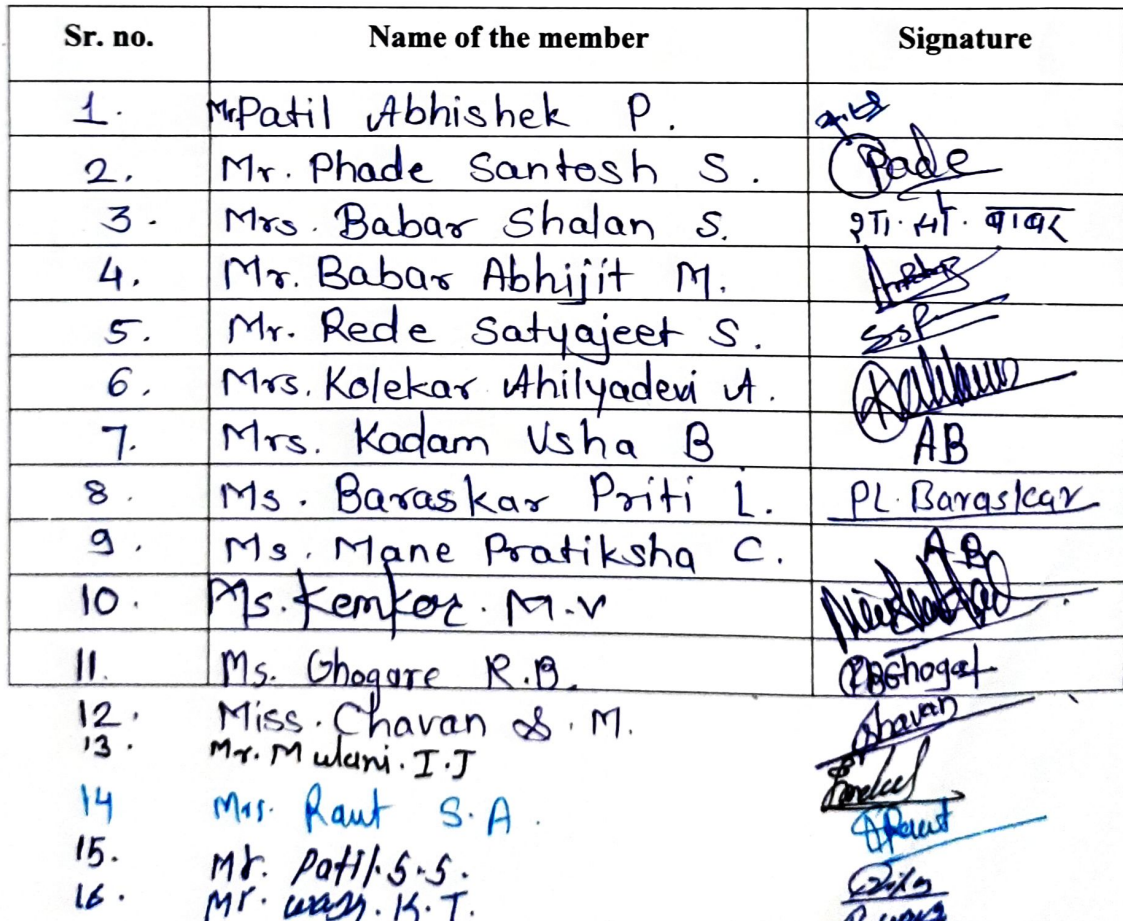 Sr. no. Name of the member Signature
1. Mr. Patil Abhishek P.
2. Mr. Phade Santosh S. Pade
3. Mrs. Babar Shalan S. शा. सो. बाबर
4. Mr. Babar Abhijit M.
5. Mr. Rede Satyajeet S. SSR
6. Mrs. Kolekar Ahilyadevi A.
7. Mrs. Kadam Usha B AB
8. Ms. Baraskar Priti L. PL. Baraskar
9. Ms. Mane Pratiksha C. AB
10. Ms. Kemkor. M.V
11. Ms. Ghogare R.B. RBGhogat
12. Miss. Chavan S. M. Chavan
13. Mr. Mulani. I.J
14 Mrs. Raut S.A. Raut
15. Mr. Patil. S.S.
16. Mr. K.T.